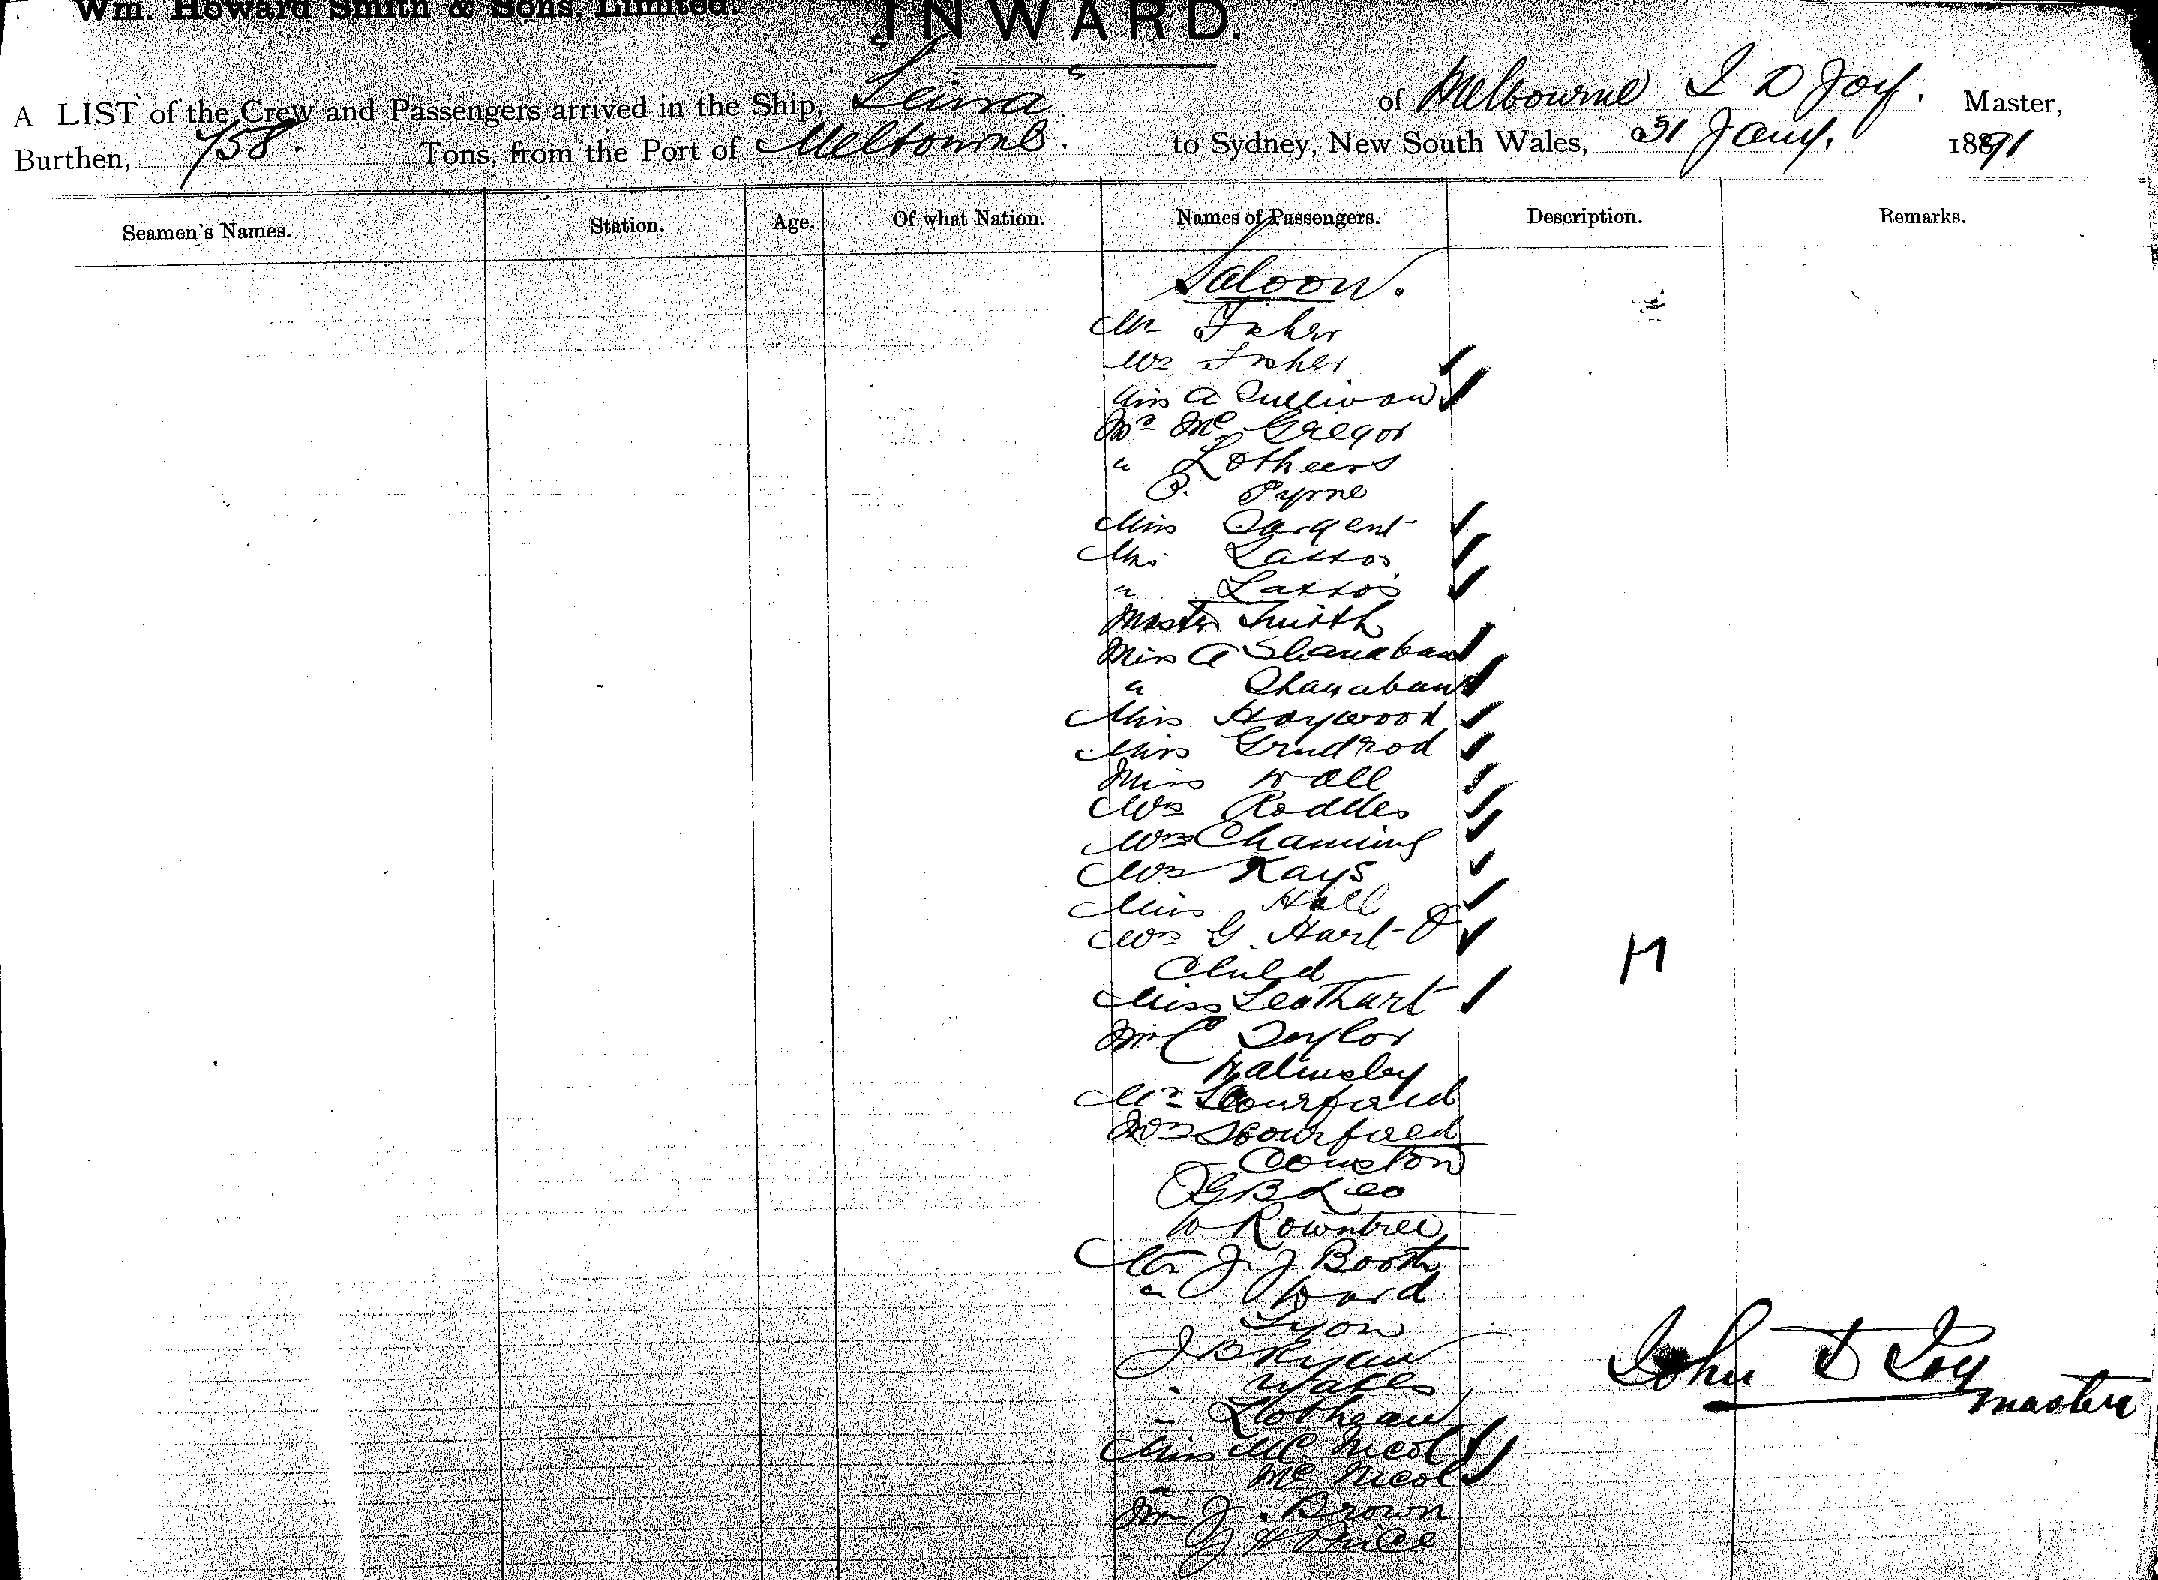 Wm. Howard Smith & Sons, Limited.
INWARD.
A LIST of the Crew and Passengers arrived in the Ship, of Melbourne J D Joy. Master,
Burthen, 758. Tons, from the Port of Melbourne. to Sydney, New South Wales, 31 Jany. 1891
Seamen's Names. Station. Age. Of what Nation. Names of Passengers. Description. Remarks.
Saloon.
Mr Fisher
Mrs Fisher
Miss A Sullivan
Mr McGregor
" 
P. Pyrne
Miss Sargent
Miss Lassos
" Lassos
Master Smith
Miss A Shanahan
" Shanahan
Miss Haywood
Miss Grudrod
Miss Wall
Mrs
Mrs Channing
Mrs Kays
Miss Hall
Mrs G. Hart &
Child
Miss Leathart
Mr C Taylor
Walmsley
Mr Scourfield
Mrs Scourfield
Couston
G B Leo
W Rowntree
Mr J. J Booth
" Ward
Lyon
J B Ryan
Wales
Miss McNicol
" McNicol
Mr J. Brown
Price
John D Joy
master